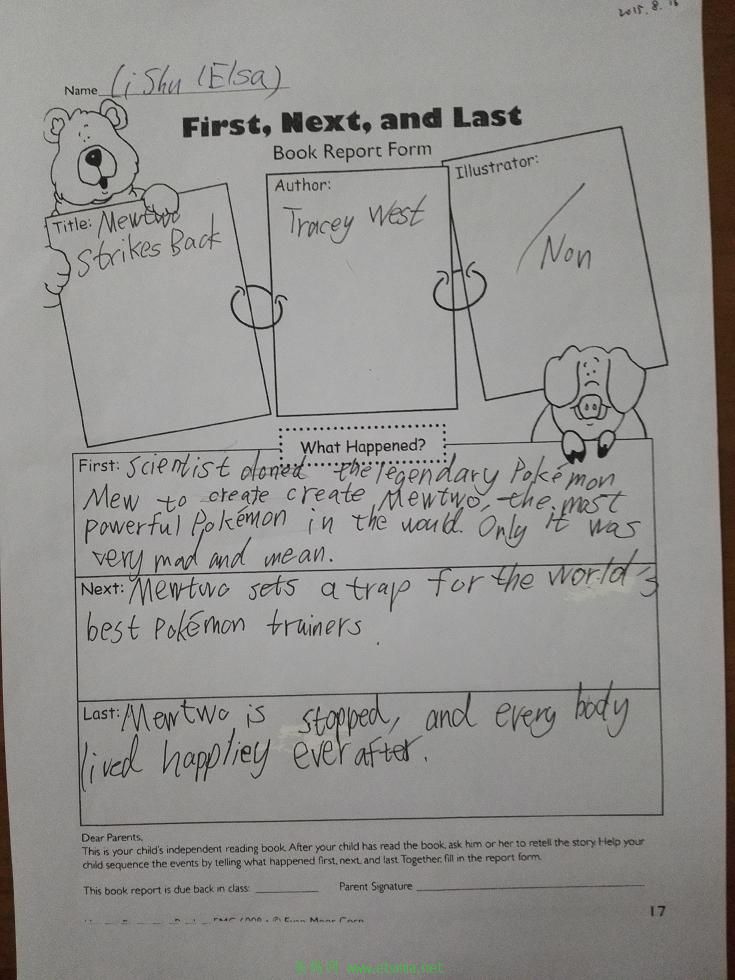 2015.8.18
Name Li Shu (Elsa)
First, Next, and Last
Book Report Form
Title: Mewtwo
Strikes Back
Author:
Tracey West
Illustrator:
/ Non
What Happened?
First: Scientist cloned the legendary Pokémon
Mew to create create Mewtwo, the most
powerful Pokémon in the would. Only it was
very mad and mean.
Next: Mewtwo sets a trap for the world's
best Pokémon trainers.
Last: Mewtwo is stopped, and every body
lived happliey ever after.
Dear Parents,
This is your child's independent reading book. After your child has read the book, ask him or her to retell the story. Help your
child sequence the events by telling what happened first, next, and last. Together, fill in the report form.
This book report is due back in class: ____________ Parent Signature ____________
17
www.ebama.net